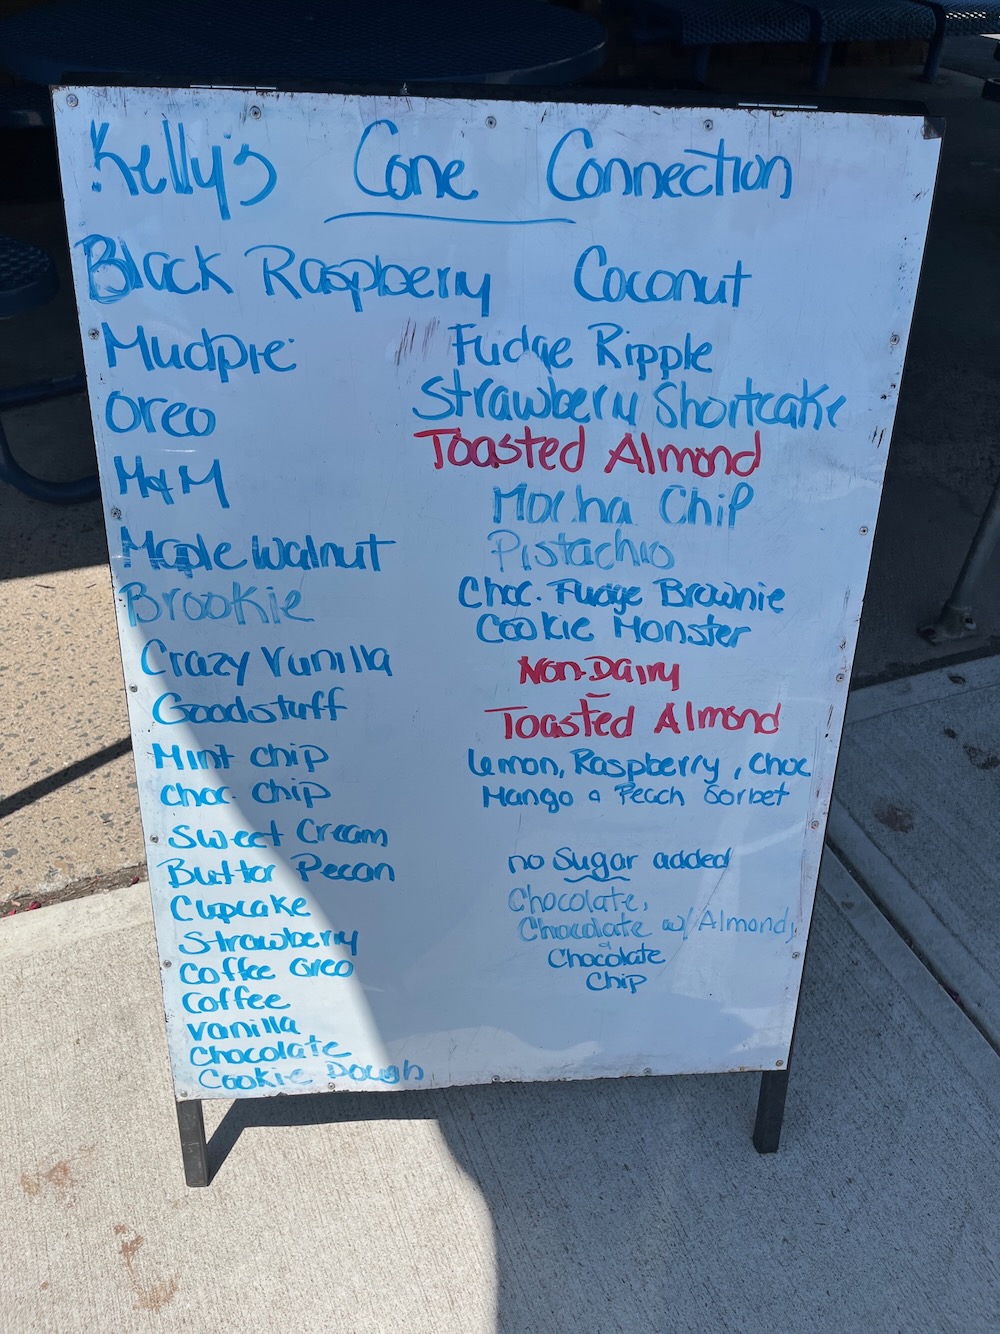 Kelly's Cone Connection
Black Raspberry
Mudpie
Oreo
M&M
Maple Walnut
Brookie
Crazy Vanilla
Goodstuff
Mint chip
choc. chip
Sweet Cream
Butter Pecan
Cupcake
Strawberry
Coffee Oreo
Coffee
Vanilla
Chocolate
Cookie Dough
Coconut
Fudge Ripple
Strawberry Shortcake
Toasted Almond
Mocha Chip
Pistachio
Choc. Fudge Brownie
Cookie Monster
Non-Dairy
Toasted Almond
Lemon, Raspberry, Choc
Mango & Peach Sorbet
no Sugar added
Chocolate,
Chocolate w/ Almond,
&
Chocolate
Chip